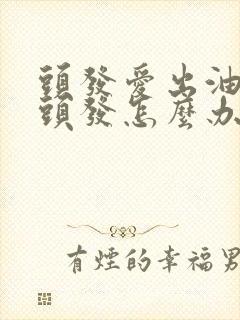 頭發愛出油
頭發怎麼办
有煙的幸福男